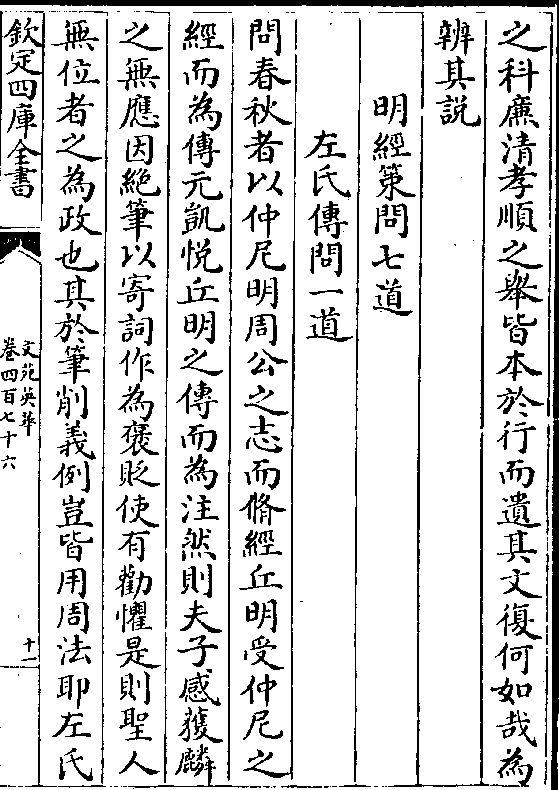 之科廉清孝順之舉皆本於行而遺其文復何如哉為
辨其説
明經策問七道
左氏傳問一道
問春秋者以仲尼明周公之志而脩經丘明受仲尼之
經而為傳元凱悦丘明之傳而為注然則夫子感獲麟
之無應因絶筆以寄詞作為褒貶使有勸懼是則聖人
無位者之為政也其於筆削義例豈皆用周法耶左氏
欽定四庫全書
文苑英華
卷四百七十六
十一